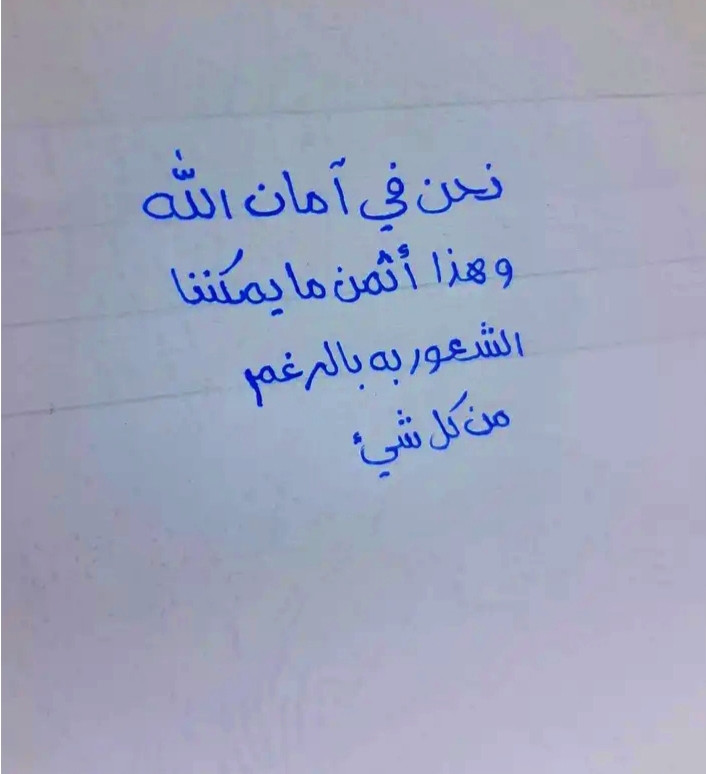 نحن في آمان الله
وهذا أثمن ما يمكننا
الشعور به بالرغم
من كل شيئ